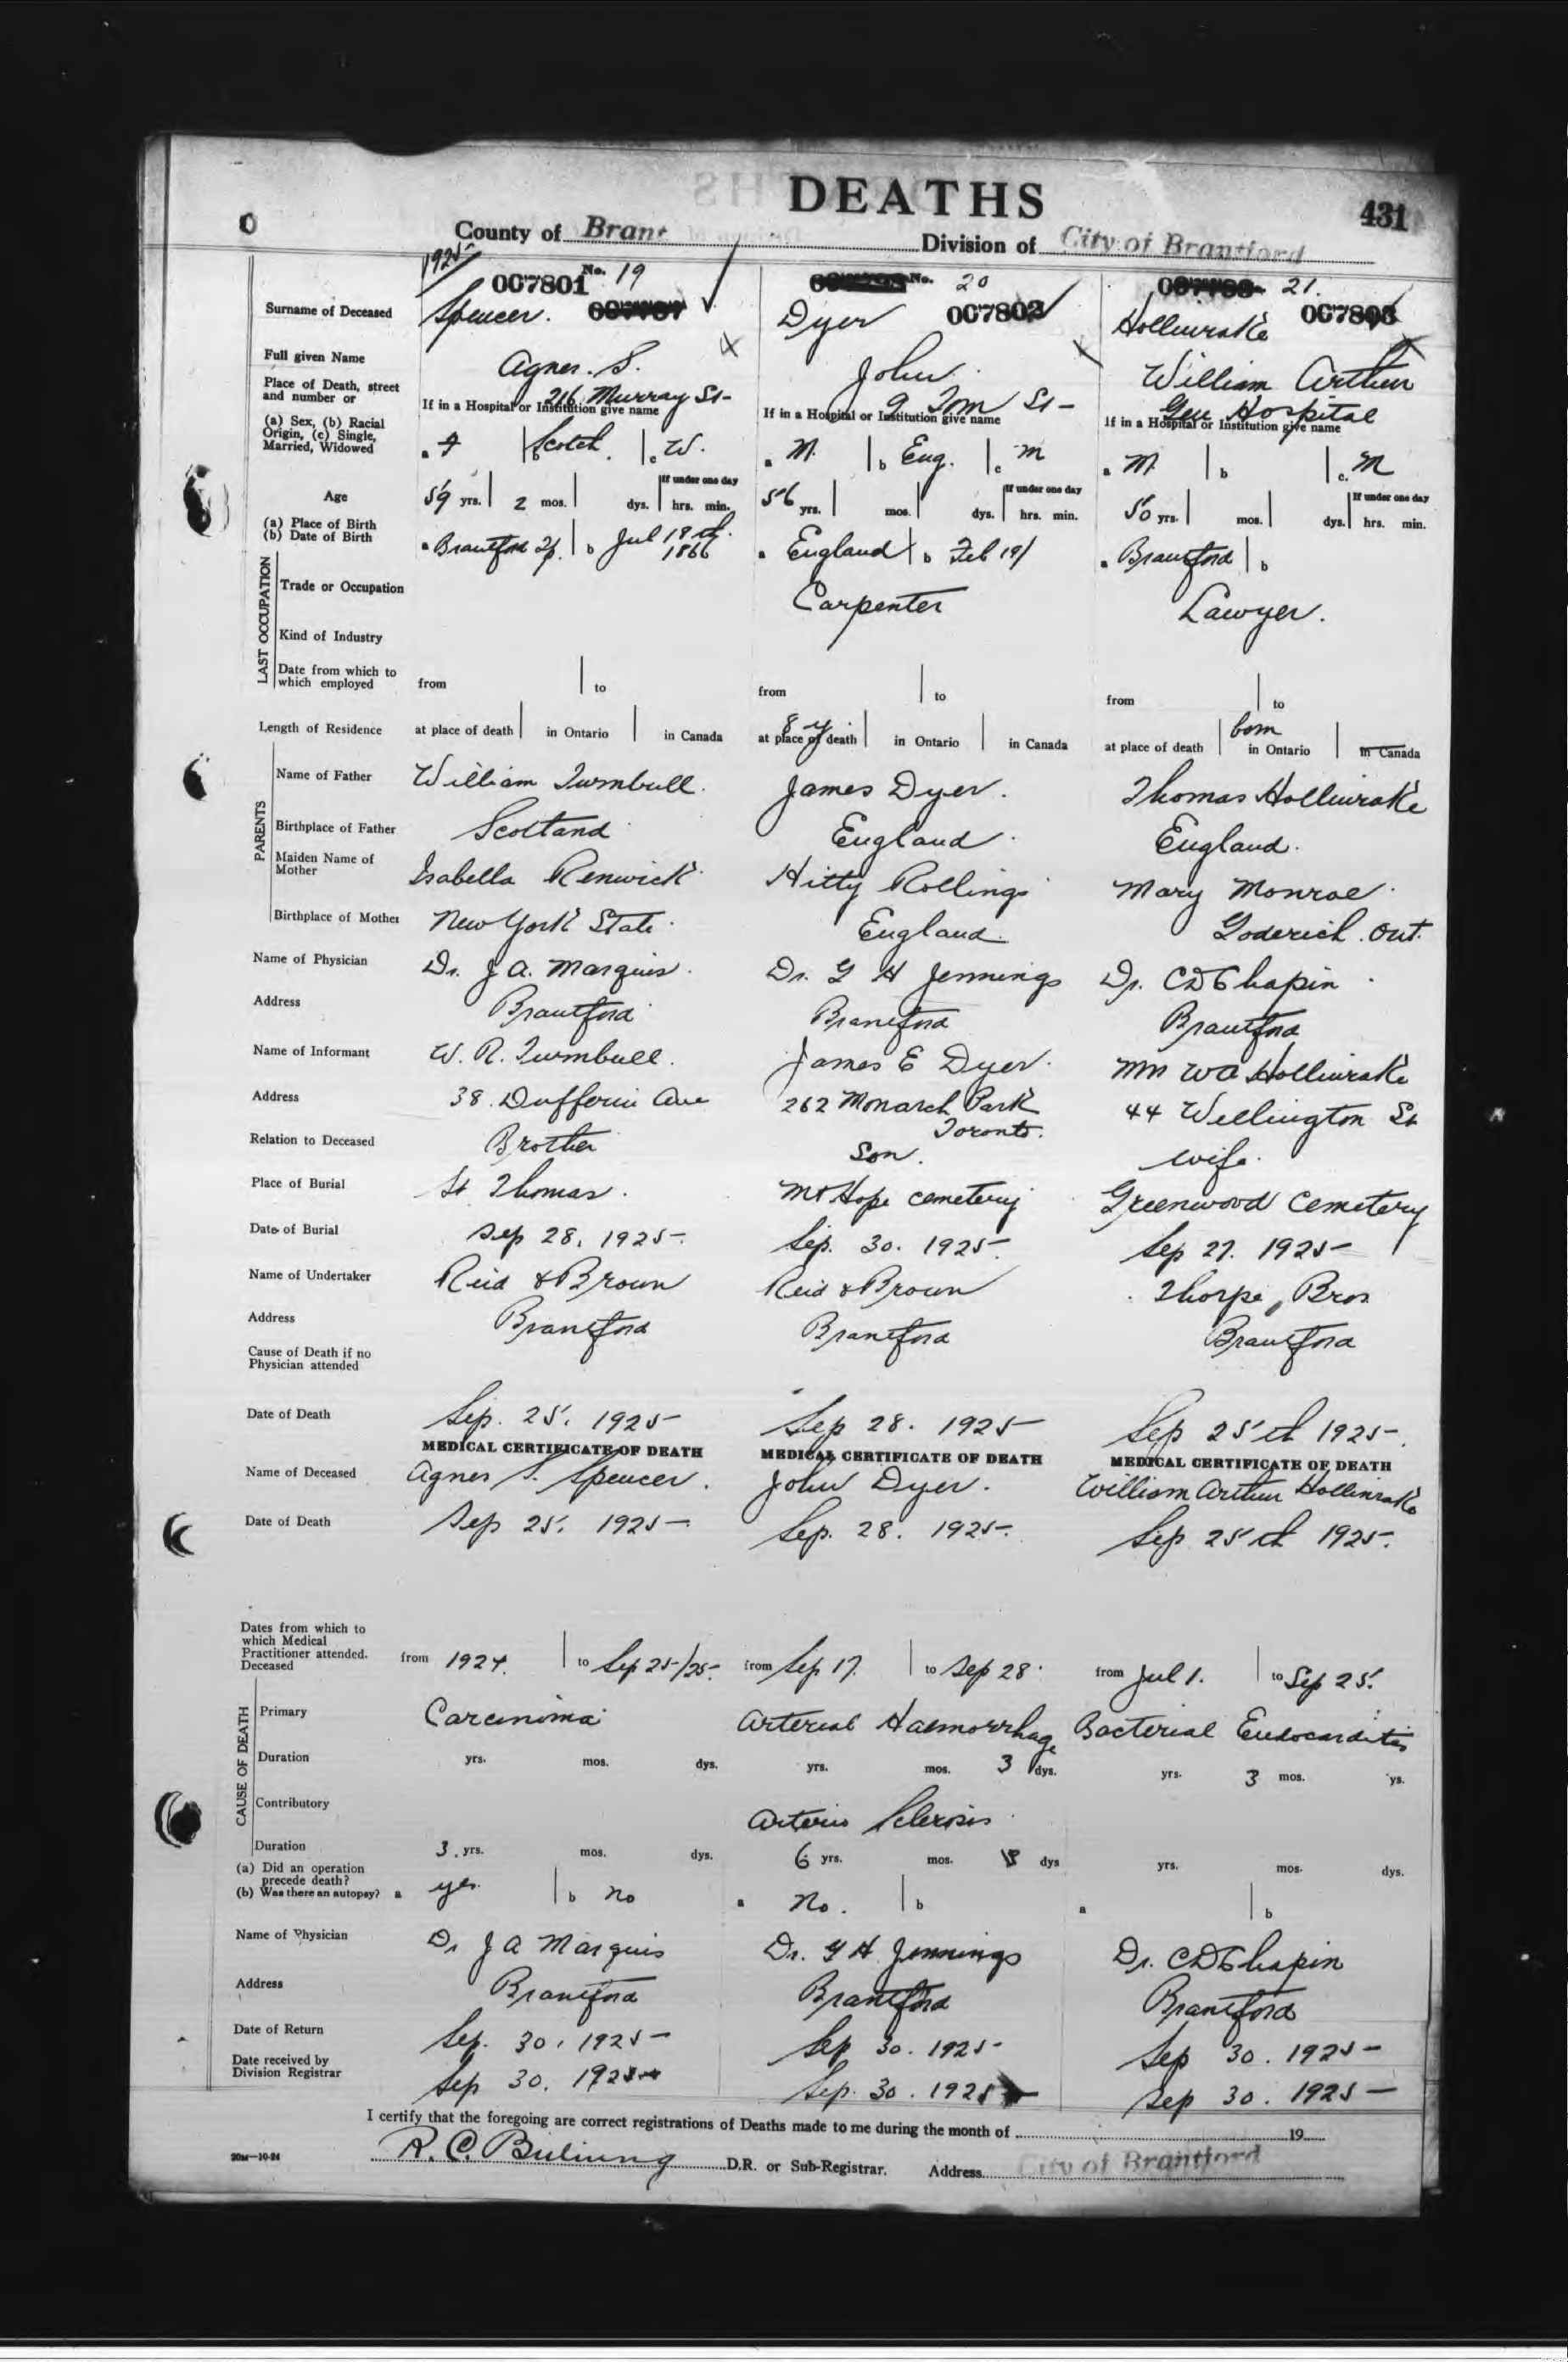 DEATHS
431
County of Brant Division of City of Brantford
1925
007801 No. 19 No. 20 21.
Surname of Deceased Spencer. Dyer 007802 Hollinrake 007803
Full given Name Agnes. S. John William Arthur
Place of Death, street and number or 216 Murray St- 9 Tom St- Gen Hospital
If in a Hospital or Institution give name If in a Hospital or Institution give name If in a Hospital or Institution give name
(a) Sex, (b) Racial Origin, (c) Single, Married, Widowed a f b Scotch. c W. a M. b Eng. c m a M. b c. M
If under one day If under one day If under one day
Age 59 yrs. 2 mos. dys. hrs. min. 56 yrs. mos. dys. hrs. min. 50 yrs. mos. dys. hrs. min.
(a) Place of Birth
(b) Date of Birth a Brantford Tp. b Jul 18th. 1866 a England b Feb 19/ a Brantford b
LAST OCCUPATION
Trade or Occupation Carpenter Lawyer.
Kind of Industry
Date from which to which employed from to from to from to
Length of Residence at place of death in Ontario in Canada 8 y at place of death in Ontario in Canada at place of death born in Ontario in Canada
PARENTS
Name of Father William Turnbull. James Dyer. Thomas Hollinrake
Birthplace of Father Scotland England. England.
Maiden Name of Mother Isabella Renwick Hitty Rollings Mary Monroe.
Birthplace of Mother New York State. England Goderich. Ont.
Name of Physician Dr. J A. Marquis. Dr. G H Jennings Dr. C D Chapin
Address Brantford Brantford Brantford
Name of Informant W. R. Turnbull. James E Dyer. Mrs W A Hollinrake
Address 38. Dufferin Ave 262 Monarch Park Toronto. 44 Wellington St
Relation to Deceased Brother Son. wife.
Place of Burial St Thomas. Mt Hope cemetery Greenwood Cemetery
Date of Burial Sep 28. 1925. Sep. 30. 1925. Sep 27. 1925
Name of Undertaker Reid & Brown Reid & Brown Thorpe Bros
Address Brantford Brantford Brantford
Cause of Death if no Physician attended
Date of Death Sep. 25. 1925 Sep 28. 1925 Sep 25th 1925.
MEDICAL CERTIFICATE OF DEATH MEDICAL CERTIFICATE OF DEATH MEDICAL CERTIFICATE OF DEATH
Name of Deceased Agnes S. Spencer. John Dyer. William Arthur Hollinrake
Date of Death Sep 25. 1925 Sep. 28. 1925. Sep 25th 1925.
Dates from which to which Medical Practitioner attended. Deceased from 1924. to Sep 25/25. from Sep 17. to Sep 28. from Jul 1. to Sep 25.
CAUSE OF DEATH
Primary Carcinoma Arterial Haemorrhage Bacterial Endocarditis
Duration yrs. mos. dys. yrs. mos. 3 dys. yrs. 3 mos. ys.
Contributory Arterio Sclerosis
Duration 3. yrs. mos. dys. 6 yrs. mos. dys yrs. mos. dys.
(a) Did an operation precede death?
(b) Was there an autopsy? a yes b no a no. b a b
Name of Physician Dr J A Marquis Dr. G H Jennings Dr. C D Chapin
Address Brantford Brantford Brantford
Date of Return Sep. 30. 1925 Sep 30. 1925 Sep 30. 1925
Date received by Division Registrar Sep 30. 1925 Sep. 30. 1925 Sep 30. 1925
I certify that the foregoing are correct registrations of Deaths made to me during the month of 19
20M—10-24 R. C. D.R. or Sub-Registrar. Address City of Brantford